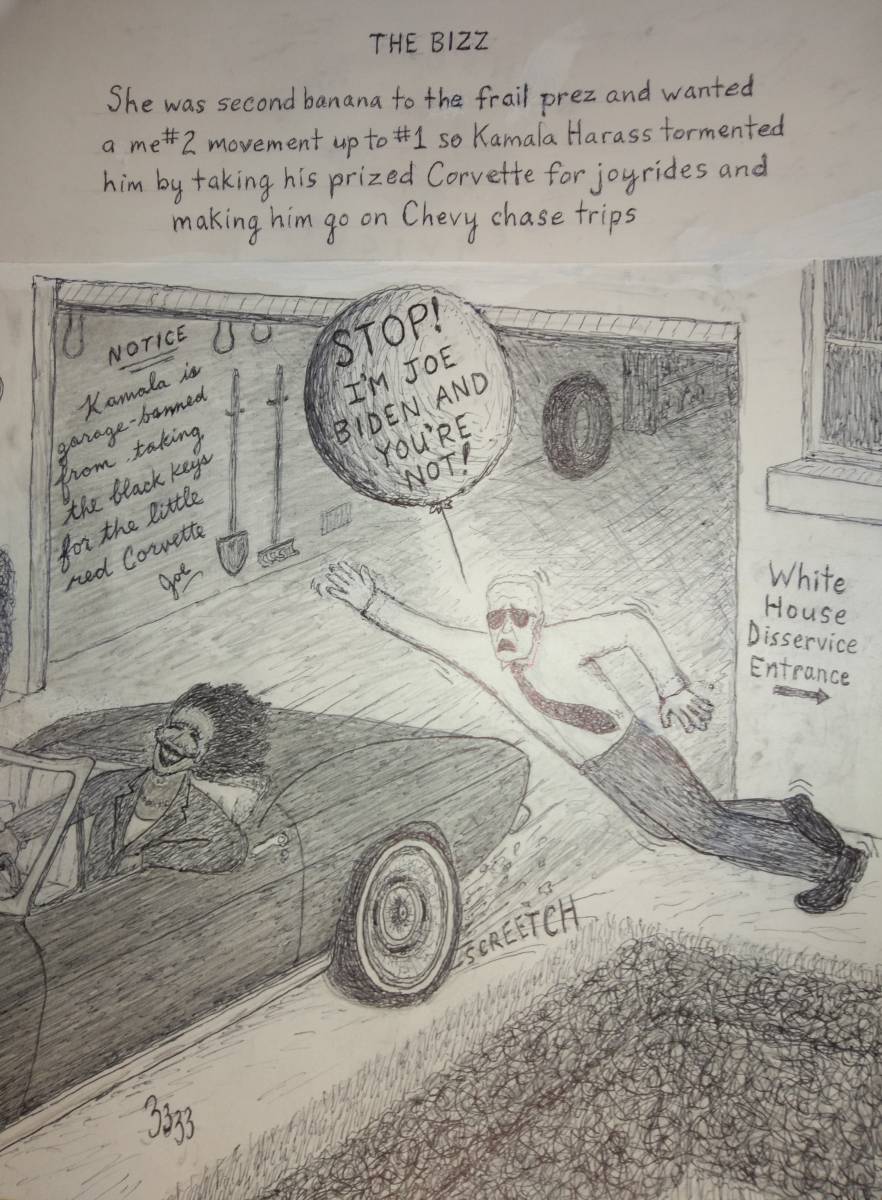 THE BIZZ
She was second banana to the frail prez and wanted
a me#2 movement up to #1 so Kamala Harass tormented
him by taking his prized Corvette for joyrides and
making him go on Chevy chase trips
NOTICE
Kamala is
garage-banned
from taking
the black keys
for the little
red Corvette
Joe
STOP!
I'M JOE
BIDEN AND
YOU'RE
NOT!
White
House
Disservice
Entrance
SCREETCH
3333